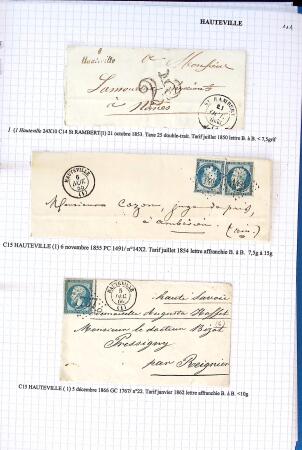 HAUTEVILLE
Hauteville
à Monsieur
25
à Nantes
ST RAMBERT
21
1 (1 Hauteville 24X10 C14 St RAMBERT(1) 21 octobre 1853. Taxe 25 double-trait. Tarif juillet 1850 lettre B. à B. < 7,5grif
HAUTEVILLE
6
(1)
Monsieur Cozon, juge de paix,
à Ambérieu
(ain)
C15 HAUTEVILLE (1) 6 novembre 1855 PC 1491/ n°14X2. Tarif juillet 1854 lettre affranchie B. à B. 7,5g à 15g
HAUTEVILLE
5
DEC
66
(1)
haute Savoie
Mademoiselle Augusta
Monsieur le docteur
Pressigny
par Reignier
C15 HAUTEVILLE ( 1) 5 décembre 1866 GC 1767/ n°22. Tarif janvier 1862 lettre affranchie B. à B. <10g